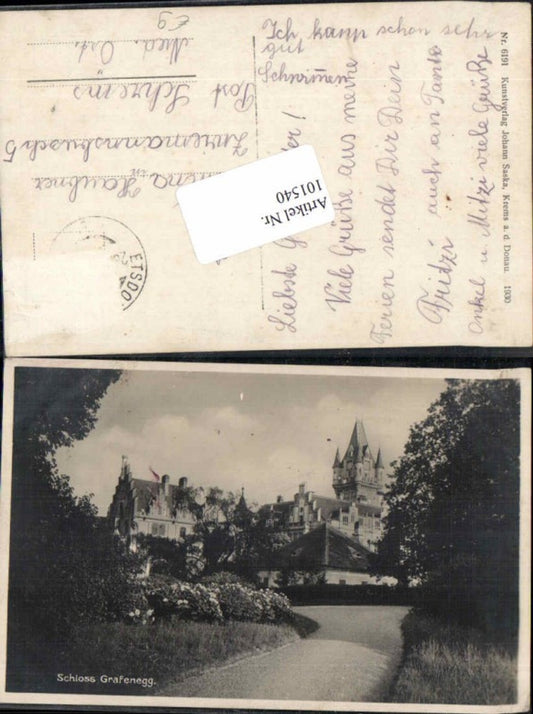 Ich kann schon sehr
gut
Schwimmen
Liebste
Viele Grüße aus meine
Ferien sendet Dir Dein
Fritzi auch an Tante
Onkel u. Mitzi viele Grüße
Haubner
Zuremannsbusch 5
Post Schrems
Nied. Öst.
ETSDO
Artikel Nr.
101540
Nr. 6191 Kunstverlag Johann Saska, Krems a. d. Donau. 1930
Schloss Grafenegg.